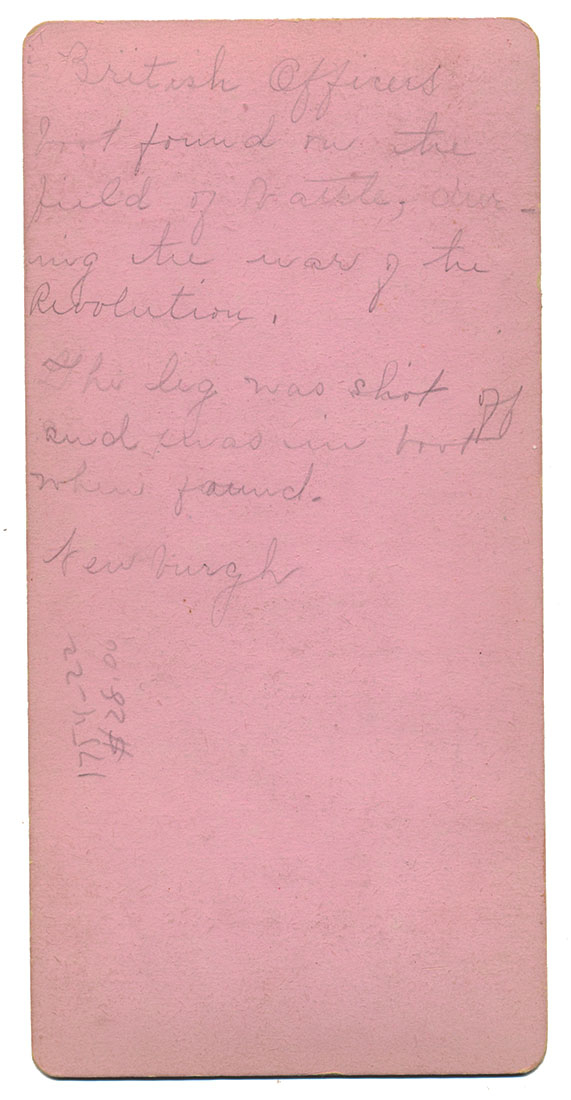 British Officers
boot found on the
field of Battle, dur-
ing the war of the
Revolution.
The leg was shot off
and was in boot
when found.
Newburgh